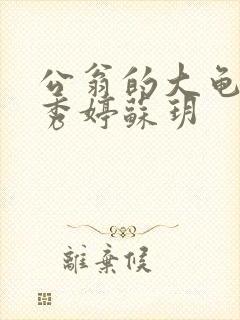 公翁的大龟
秀婷蘇玥
離棄侯